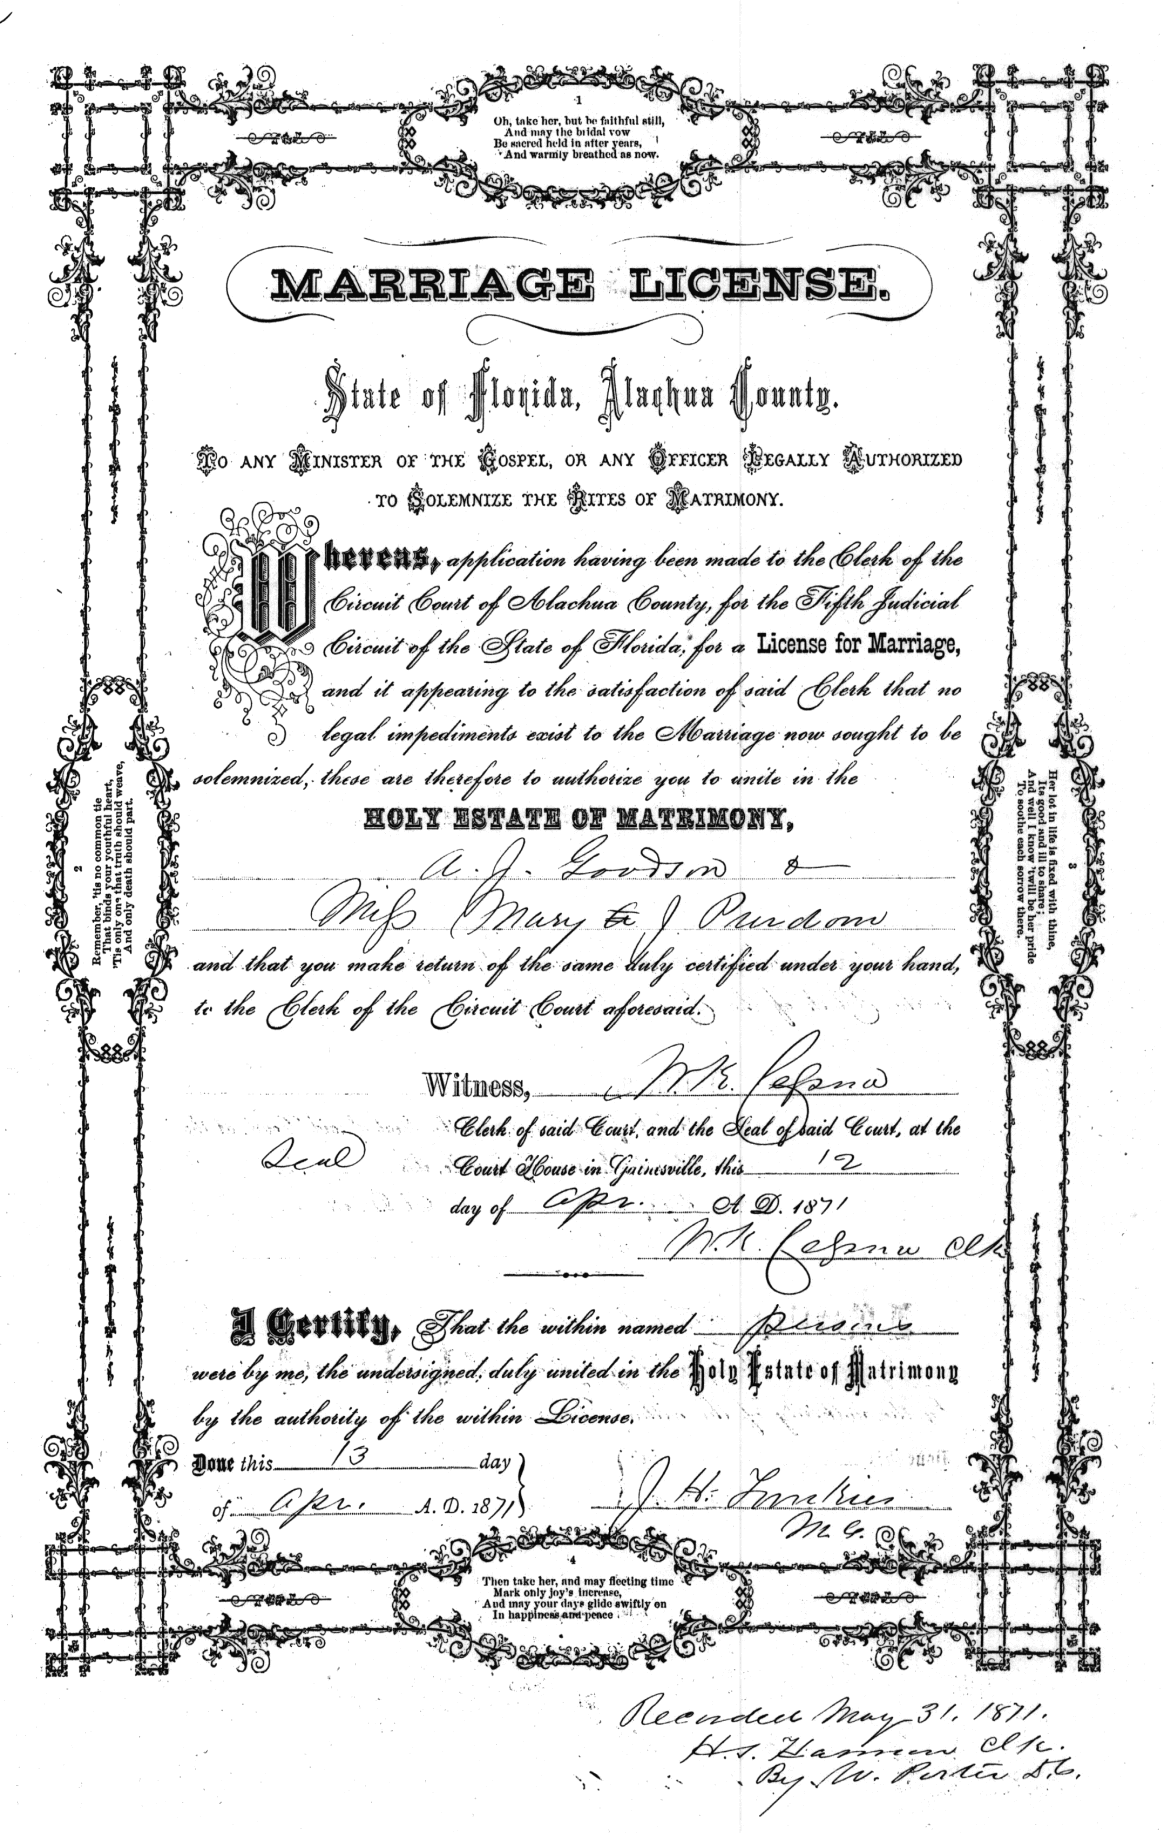 1
Oh, take her, but be faithful still,
And may the bridal vow
Be sacred held in after years,
And warmly breathed as now.
MARRIAGE LICENSE.
State of Florida, Alachua County.
TO ANY MINISTER OF THE GOSPEL, OR ANY OFFICER LEGALLY AUTHORIZED
TO SOLEMNIZE THE RITES OF MATRIMONY.
Whereas, application having been made to the Clerk of the
Circuit Court of Alachua County, for the Fifth Judicial
Circuit of the State of Florida, for a License for Marriage,
and it appearing to the satisfaction of said Clerk that no
legal impediments exist to the Marriage now sought to be
solemnized, these are therefore to authorize you to unite in the
HOLY ESTATE OF MATRIMONY,
A. J. Goodson &
Miss Mary J Purdom
and that you make return of the same duly certified under your hand,
to the Clerk of the Circuit Court aforesaid.
2
Remember, 'tis no common tie
That binds your youthful heart,
'Tis only one that truth should weave,
And only death should part.
3
Her lot in life is fixed with thine,
Its good and ill to share;
And well I know 'twill be her pride
To soothe each sorrow there.
Witness, W. K. Cessna
Clerk of said Court, and the Seal of said Court, at the
Seal
Court House in Gainesville, this 12
day of Apr. A. D. 1871
W. K. Cessna Clk
I Certify, That the within named persons
were by me, the undersigned, duly united in the Holy Estate of Matrimony
by the authority of the within License.
Done this 13 day
of Apr. A. D. 1871
J. H.
M. G.
4
Then take her, and may fleeting time
Mark only joy's increase,
And may your days glide swiftly on
In happiness and peace
Recorded May 31. 1871.
H. S. Clk.
By W. Porter D.C.